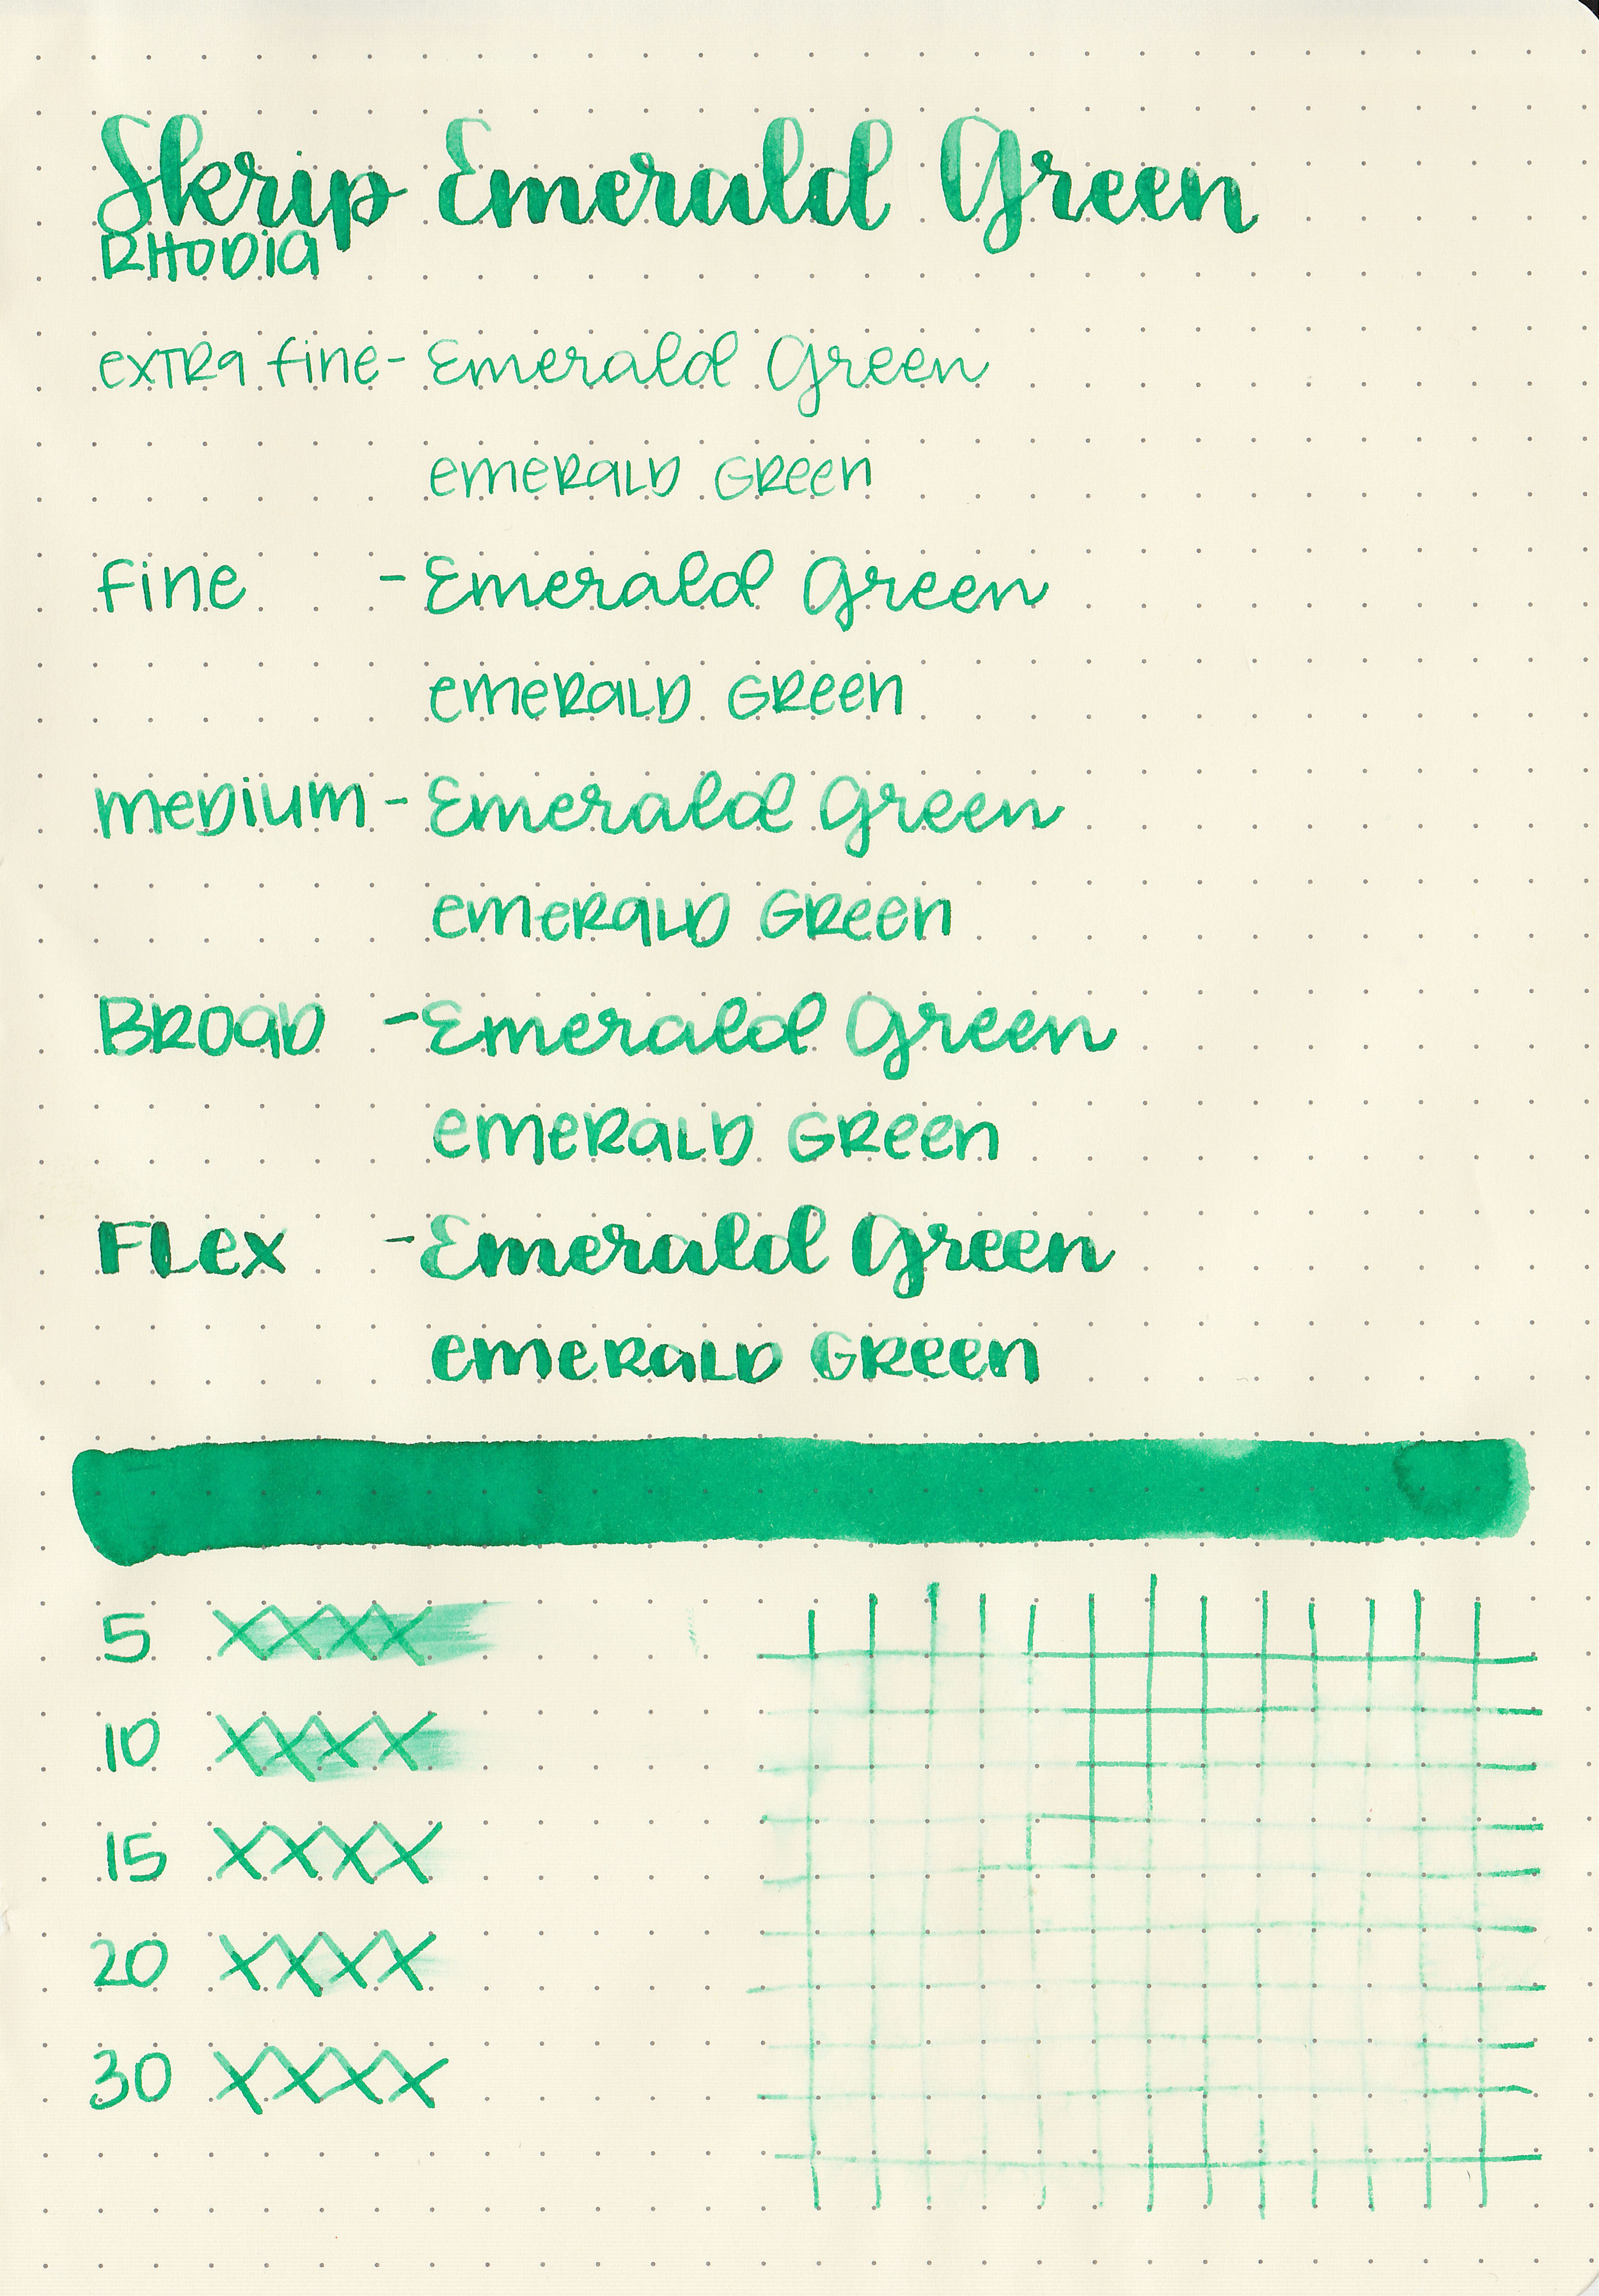 Skrip Emerald Green
RHODIA
EXTRA fine - Emerald Green
emeRALD GReen
fine - Emerald Green
emeRALD GReen
meDium - Emerald Green
emeRALD GReen
BROAD - Emerald Green
emeRALD GReen
FLex - Emerald Green
emeRALD GReen
5 XXXX
10 XXXX
15 XXXX
20 XXXX
30 XXXX